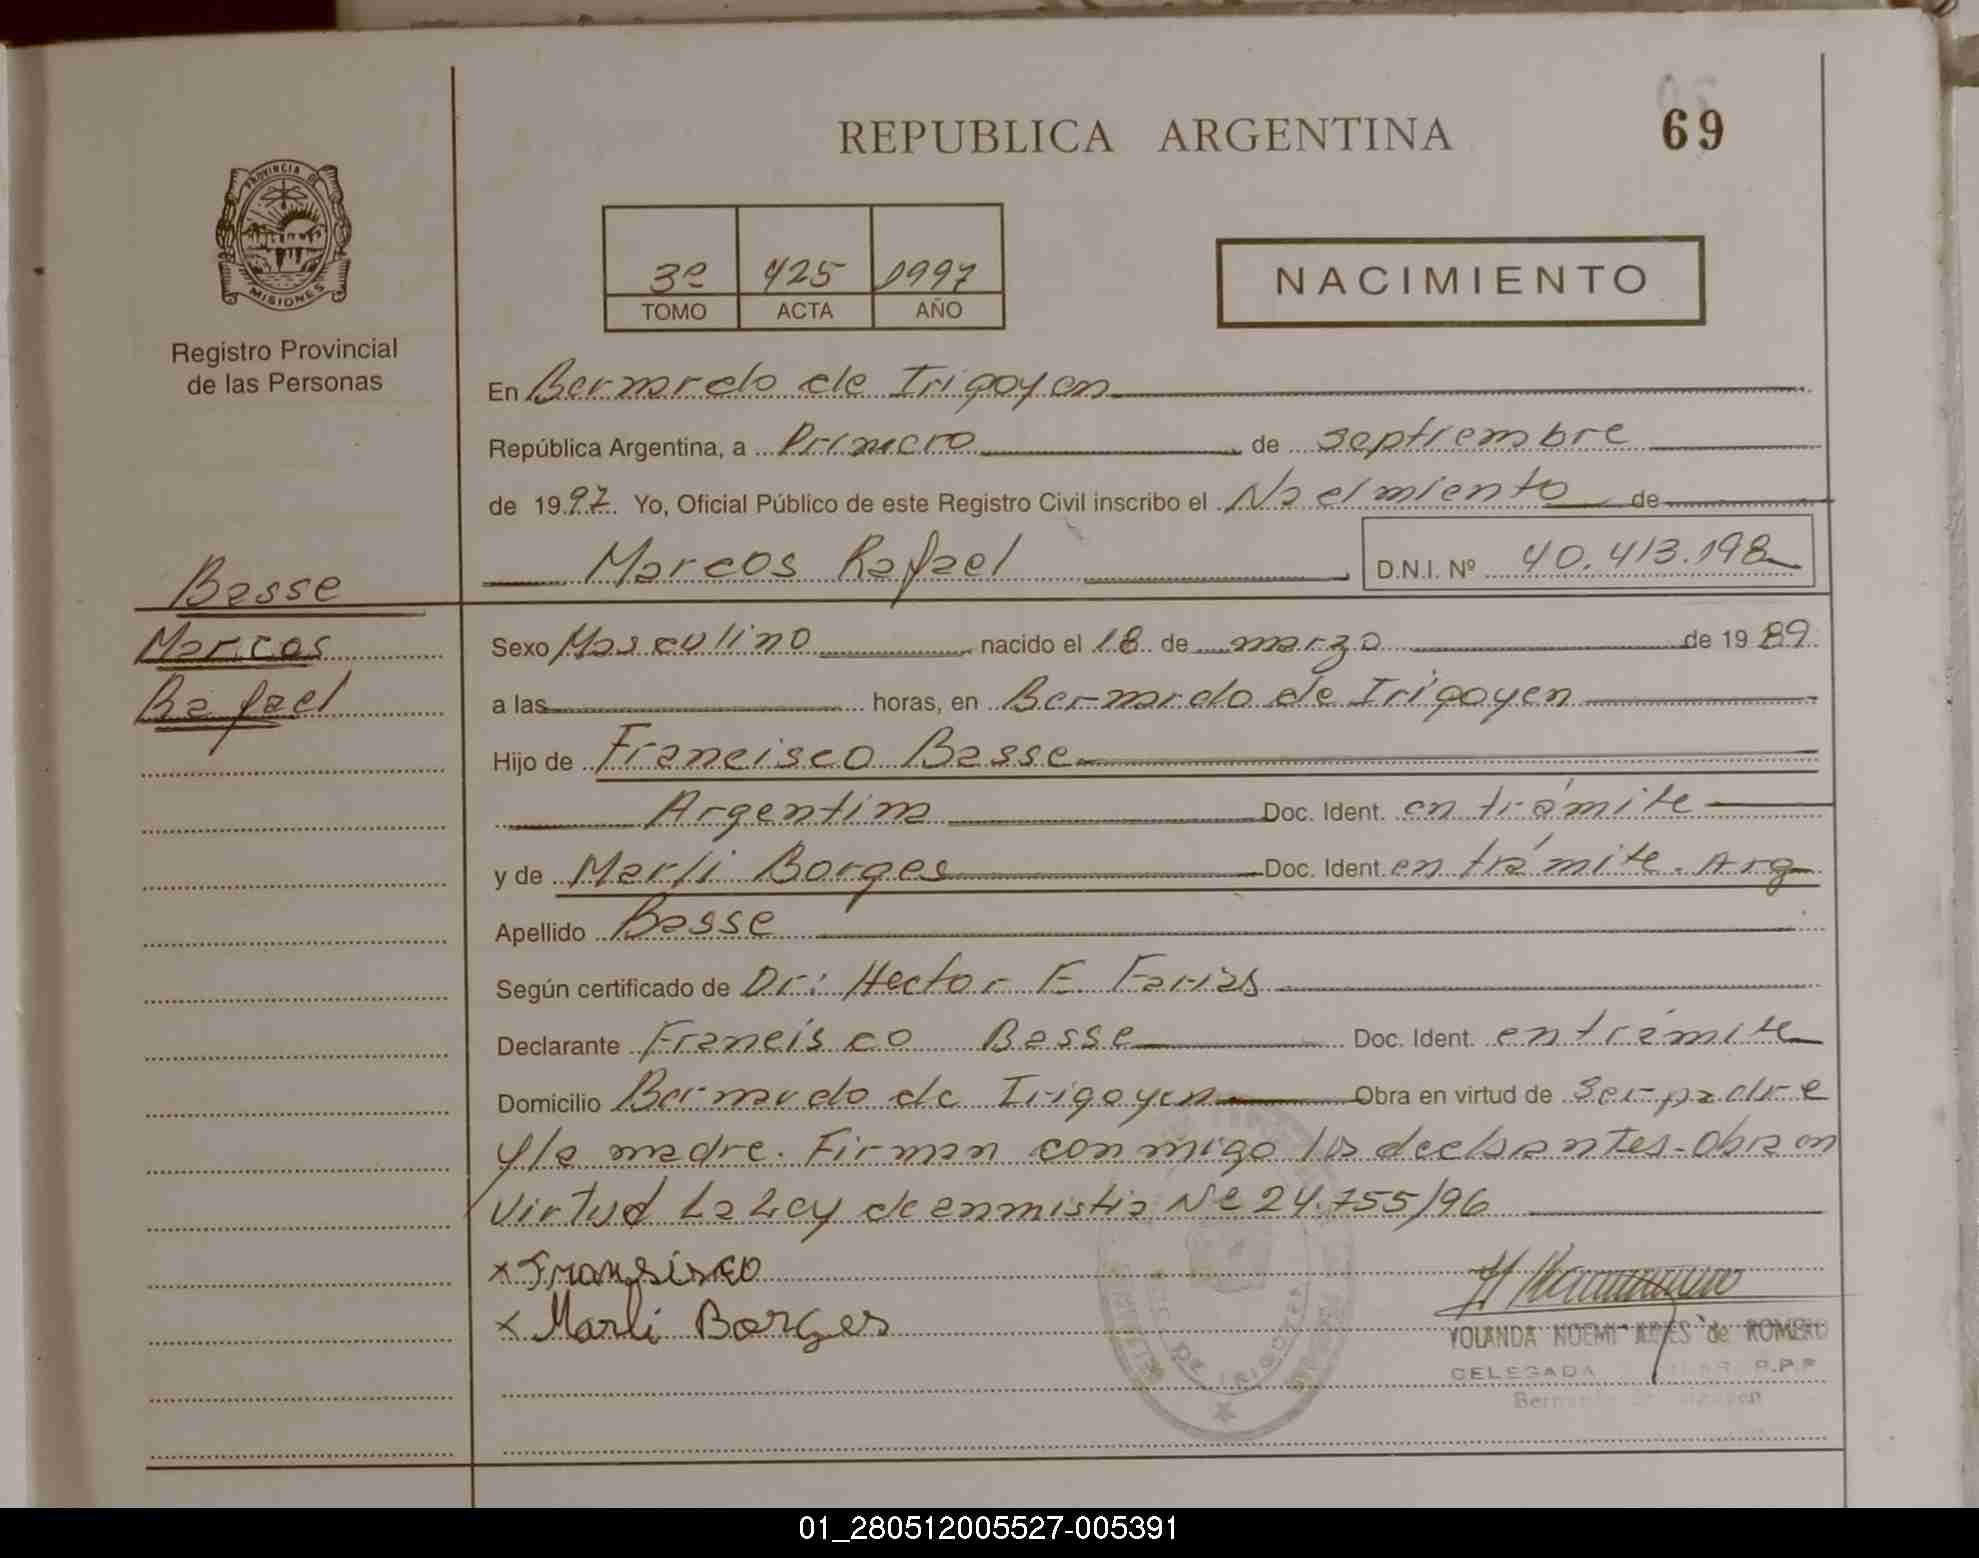 REPUBLICA ARGENTINA
69
PROVINCIA DE
MISIONES
Registro Provincial
de las Personas
3º 425 1997
TOMO ACTA AÑO
NACIMIENTO
En Bernardo de Irigoyen
República Argentina, a Primero de septiembre
de 1997. Yo, Oficial Público de este Registro Civil inscribo el Nacimiento de
Marcos Rafael D.N.I. Nº 40.413.198
Basse
Marcos
Rafael
Sexo Masculino nacido el 18 de marzo de 1989
a las horas, en Bernardo de Irigoyen
Hijo de Francisco Basse
Argentina Doc. Ident. en trámite
y de Marli Borges Doc. Ident. en trámite. Arg
Apellido Basse
Según certificado de Dr: Hector E. Farias
Declarante Francisco Basse Doc. Ident. en trámite
Domicilio Bernardo de Irigoyen Obra en virtud de Ser padre
y la madre. Firman conmigo los declarantes. Obra en
virtud La Ley de enmistia Nº 24.755/96
x Fransisco
x Marli Borges
YOLANDA NOEMI de ROMERO
DELEGADA R.P.P
DE IRIGOYEN
01_280512005527-005391